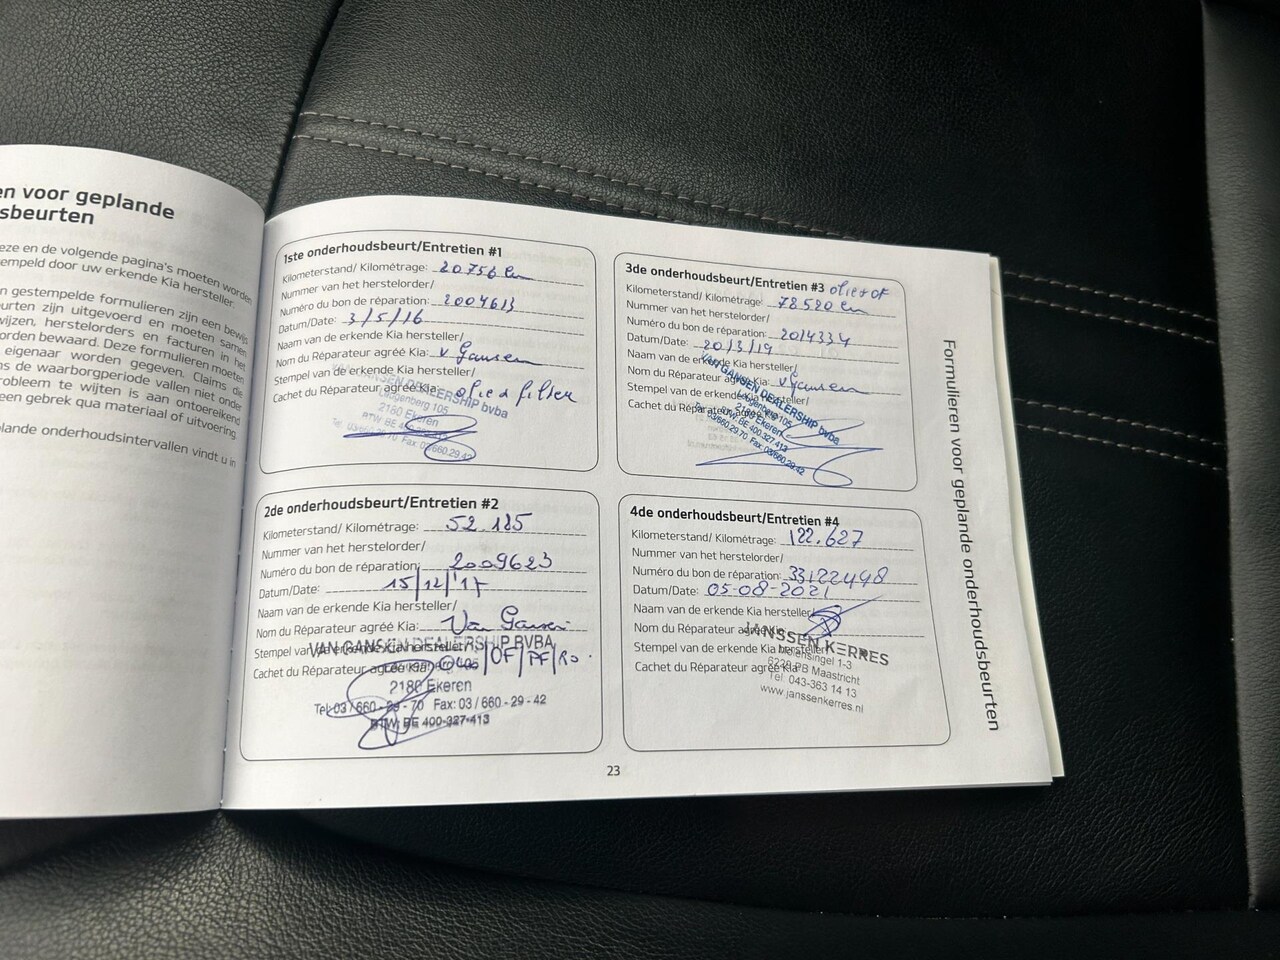 en voor geplande
sbeurten
eze en de volgende pagina's moeten worden
empeld door uw erkende Kia hersteller.
n gestempelde formulieren zijn een bewijs
eurten zijn uitgevoerd en moeten samen
wijzen, herstelorders en facturen in het
orden bewaard. Deze formulieren moeten
eigenaar worden gegeven. Claims die
ns de waarborgperiode vallen niet onder
robleem te wijten is aan ontoereikend
een gebrek qua materiaal of uitvoering.
plande onderhoudsintervallen vindt u in
1ste onderhoudsbeurt/Entretien #1
Kilometerstand/ Kilométrage: 20756 km
Nummer van het herstelorder/
Numéro du bon de réparation: 2004613
Datum/Date: 3/5/16
Naam van de erkende Kia hersteller/
Nom du Réparateur agréé Kia: v Gansen
Stempel van de erkende Kia hersteller/
Cachet du Réparateur agréé Kia: olie + filter
VAN GANSEN DEALERSHIP bvba
Laagenberg 105
2180 Ekeren
BTW BE 400.327.413
Tel. 03/660.29.70 Fax 03/660.29.42
2de onderhoudsbeurt/Entretien #2
Kilometerstand/ Kilométrage: 52.185
Nummer van het herstelorder/
Numéro du bon de réparation: 2009623
Datum/Date: 15/12/'17
Naam van de erkende Kia hersteller/
Nom du Réparateur agréé Kia: Van Gansen
Stempel van de erkende Kia hersteller/
Cachet du Réparateur agréé Kia: OF/PF/
VAN GANSEN DEALERSHIP BVBA
2180 Ekeren
Tel: 03 / 660 - 29 - 70 Fax: 03 / 660 - 29 - 42
BTW: BE 400-327-413
3de onderhoudsbeurt/Entretien #3 olie + OF
Kilometerstand/ Kilométrage: 78520 km
Nummer van het herstelorder/
Numéro du bon de réparation: 2014334
Datum/Date: 20/3/19
Naam van de erkende Kia hersteller/
Nom du Réparateur agréé Kia: v Gansen
Stempel van de erkende Kia hersteller/
Cachet du Réparateur agréé Kia:
VAN GANSEN DEALERSHIP bvba
Laagenberg 105
2180 Ekeren
BTW BE 400.327.413
03/660.29.70 Fax 03/660.29.42
4de onderhoudsbeurt/Entretien #4
Kilometerstand/ Kilométrage: 122.627
Nummer van het herstelorder/
Numéro du bon de réparation: 33122498
Datum/Date: 05-08-2021
Naam van de erkende Kia hersteller/
Nom du Réparateur agréé Kia:
Stempel van de erkende Kia hersteller/
Cachet du Réparateur agréé Kia:
JANSSEN KERRES
Molensingel 1-3
6229 PB Maastricht
Tel: 043-363 14 13
www.janssenkerres.nl
Formulieren voor geplande onderhoudsbeurten
23